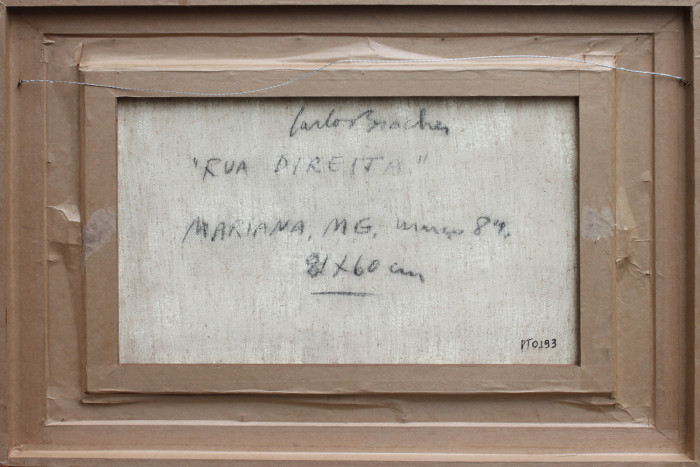 Carlos Bracher
"RUA DIREITA"
MARIANA, MG, março 89.
31 X 60 cm
PT0193